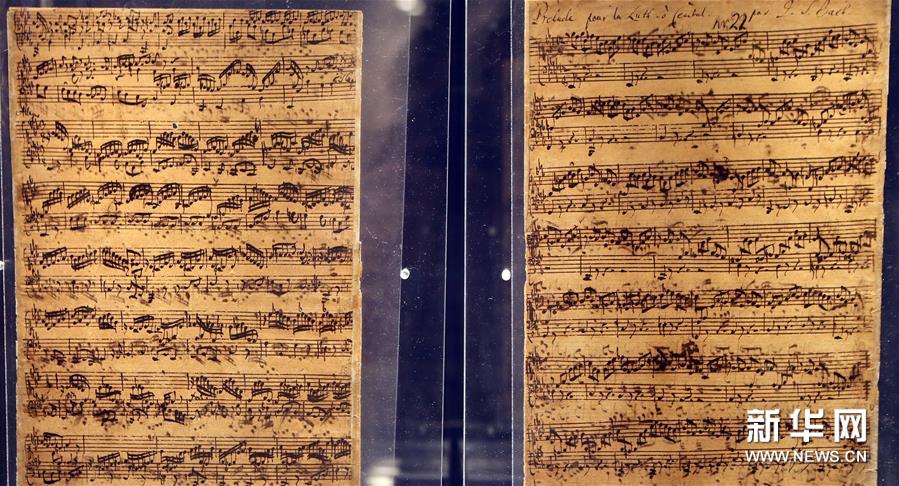 Prelude pour la Luth. ò Cembal. par J. S. Bach
新华网
WWW.NEWS.CN